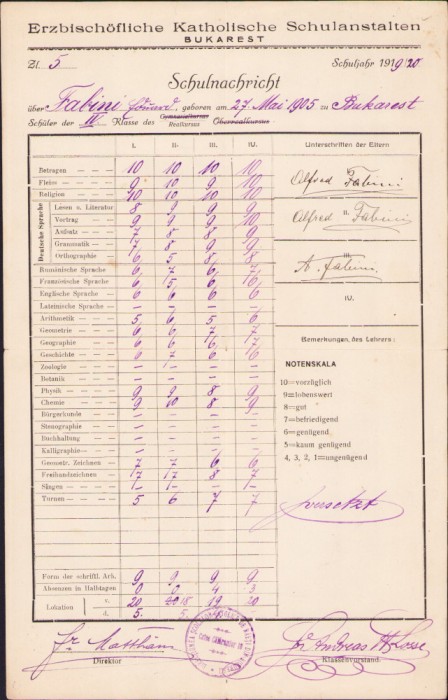 Erzbischöfliche Katholische Schulanstalten
BUKAREST
Zl. 5 Schuljahr 1919/20
Schulnachricht
über Fabini Eduard, geboren am 27. Mai 1905 zu Bukarest
Schüler der III. Klasse des Gymnasialkursus Realkursus Oberrealkursus
I. II. III. IV. Unterschriften der Eltern
Betragen — — 10 10 10 10
Fleiss — — — 9 10 9 10
Religion — — — 10 10 10 10
Deutsche Sprache
Lesen u. Literatur 8 9 9 9
Vortrag — — 9 9 9 10
Aufsatz — — 7 8 8 9
Grammatik — — 7 8 9 9
Orthographie — 6 5 8 8
Rumänische Sprache 6 7 6 7
Französische Sprache 6 5 6 6
Englische Sprache 6 6 6 6
Lateinische Sprache — — — —
Arithmetik — — 5 6 5 6
Geometrie — — 6 6 7 7
Geographie — — 6 6 6 7
Geschichte — — 6 7 6 6
Zoologie — — — — — —
Botanik — — — — — —
Physik — — — 9 9 8 9
Chemie — — — 9 10 8 9
Bürgerkunde — — — — —
Stenographie — — — — —
Buchhaltung — — — — —
Kalligraphie — — — — —
Geometr. Zeichnen 7 7 6 6
Freihandzeichnen 7 7 8 7
Singen — — — — — — —
Turnen — — — 5 6 7 7
Form der schriftl. Arb. 9 9 9 9
Absenzen in Halbtagen 0 0 4 3
Lokation c. 20 20 18 19 20
d. 5. 5
Alfred Fabini
II.
Alfred Fabini
III.
A. Fabini
IV.
Bemerkungen des Lehrers:
NOTENSKALA
10=vorzüglich
9=lobenswert
8=gut
7=befriedigend
6=genügend
5=kaum genügend
4, 3, 2, 1=ungenügend
versetzt
Direktor
Klassenvorstand.